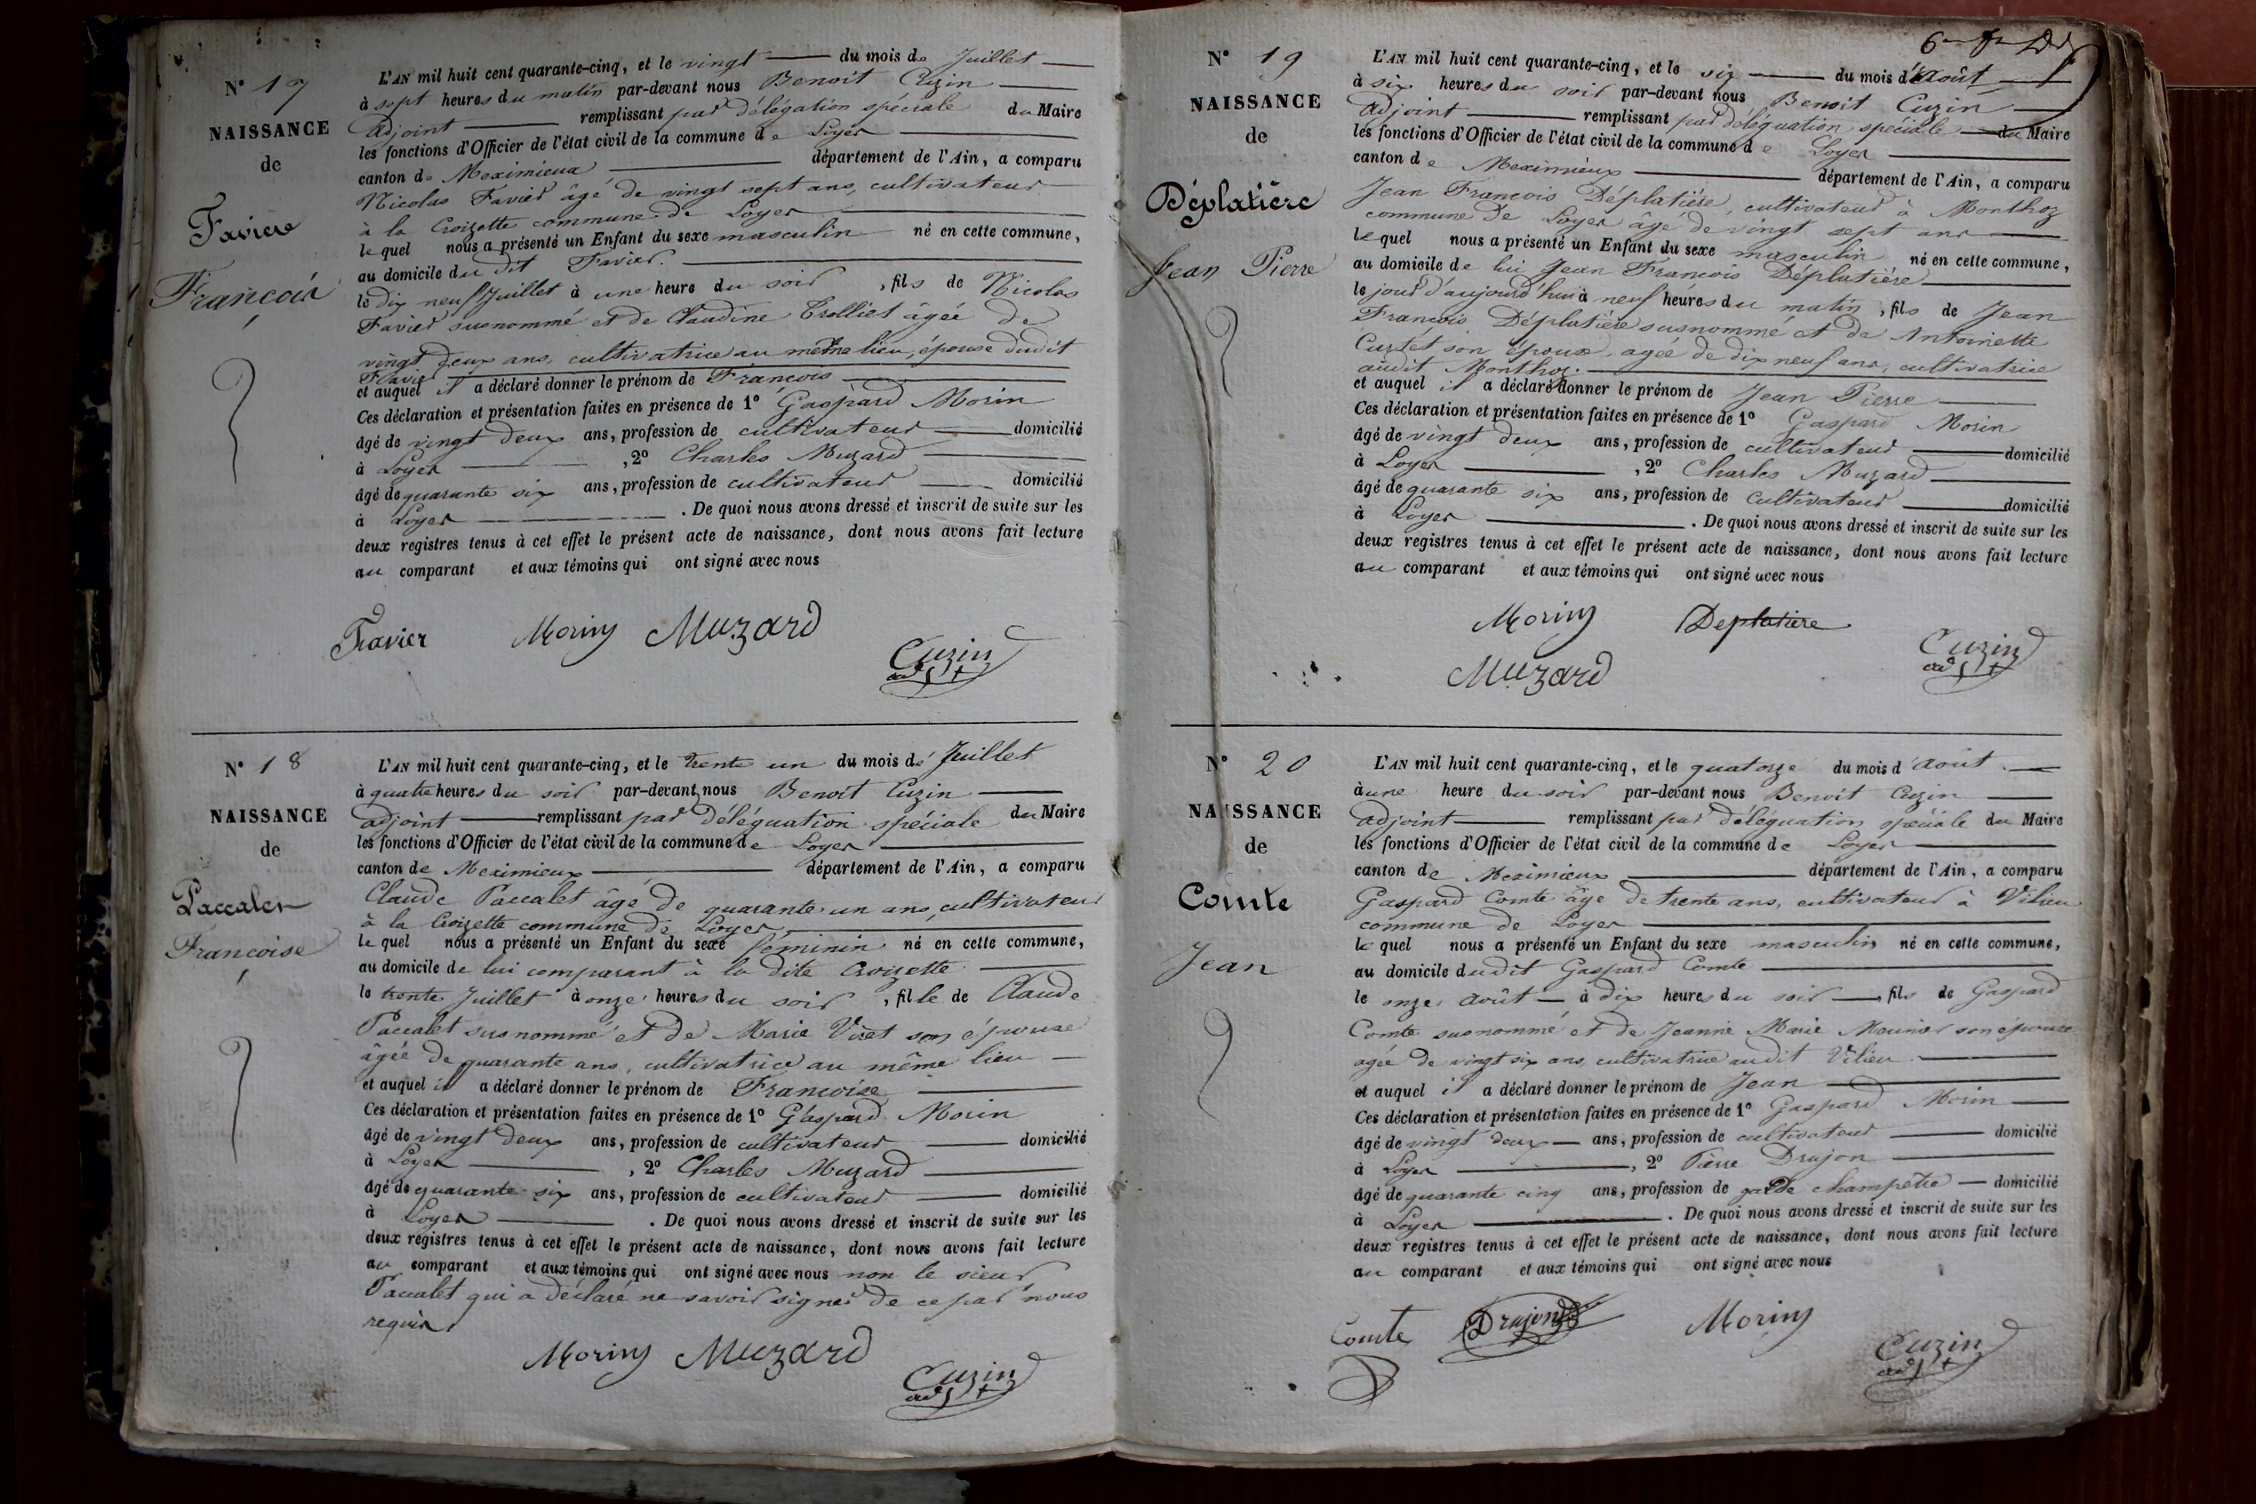 N° 17
NAISSANCE
de
Favier
François
L'AN mil huit cent quarante-cinq, et le vingt du mois de Juillet
à sept heures du matin par-devant nous Benoit Cuzin
adjoint remplissant par délégation spéciale du Maire
les fonctions d'Officier de l'état civil de la commune de Loyes
canton de Meximieux département de l'Ain, a comparu
Nicolas Favier âgé de vingt sept ans, cultivateur
à la Croizette commune de Loyes
le quel nous a présenté un Enfant du sexe masculin né en cette commune,
au domicile du dit Favier.
le dix neuf Juillet à une heure du soir, fils de Nicolas
Favier susnommé et de Claudine Trolliet âgée de
vingt deux ans, cultivatrice au même lieu, épouse dudit
Favier
et auquel il a déclaré donner le prénom de François
Ces déclaration et présentation faites en présence de 1° Gaspard Morin
âgé de vingt deux ans, profession de cultivateur domicilié
à Loyes, 2° Charles Muzard
âgé de quarante six ans, profession de cultivateur domicilié
à Loyes. De quoi nous avons dressé et inscrit de suite sur les
deux registres tenus à cet effet le présent acte de naissance, dont nous avons fait lecture
au comparant et aux témoins qui ont signé avec nous
Favier Morin Muzard
Cuzin
adjt
N° 18
NAISSANCE
de
Paccalet
Francoise
L'AN mil huit cent quarante-cinq, et le trente un du mois de Juillet
à quatre heures du soir par-devant nous Benoit Cuzin
adjoint remplissant par déléguation spéciale du Maire
les fonctions d'Officier de l'état civil de la commune de Loyes
canton de Meximieux département de l'Ain, a comparu
Claude Paccalet âgé de quarante un ans, cultivateur
à la Croizette commune de Loyes
le quel nous a présenté un Enfant du sexe féminin né en cette commune,
au domicile de lui comparant à la dite Croizette
le trente Juillet à onze heures du soir, fille de Claude
Paccalet susnommé et de Marie Viret son épouse
âgée de quarante ans, cultivatrice au même lieu
et auquel il a déclaré donner le prénom de Francoise
Ces déclaration et présentation faites en présence de 1° Gaspard Morin
âgé de vingt deux ans, profession de cultivateur domicilié
à Loyes, 2° Charles Muzard
âgé de quarante six ans, profession de cultivateur domicilié
à Loyes. De quoi nous avons dressé et inscrit de suite sur les
deux registres tenus à cet effet le présent acte de naissance, dont nous avons fait lecture
au comparant et aux témoins qui ont signé avec nous non le sieur
Paccalet qui a déclaré ne savoir signer de ce par nous
requis
Morin Muzard
Cuzin
adjt
N° 19
NAISSANCE
de
Déplatière
Jean Pierre
L'AN mil huit cent quarante-cinq, et le six du mois d'Août
à six heures du soir par-devant nous Benoit Cuzin
adjoint remplissant par déléguation spéciale du Maire
les fonctions d'Officier de l'état civil de la commune de Loyes
canton de Meximieux département de l'Ain, a comparu
Jean François Déplatière, cultivateur à Monthoz
commune de Loyes âgé de vingt sept ans
le quel nous a présenté un Enfant du sexe masculin né en cette commune,
au domicile de lui Jean François Déplatière
le jour d'aujourd'hui à neuf heures du matin, fils de Jean
François Déplatière susnommé et de Antoinette
Curtet son épouse, agée de dix neuf ans, cultivatrice
audit Monthoz.
et auquel il a déclaré donner le prénom de Jean Pierre
Ces déclaration et présentation faites en présence de 1° Gaspard Morin
âgé de vingt deux ans, profession de cultivateur domicilié
à Loyes, 2° Charles Muzard
âgé de quarante six ans, profession de cultivateur domicilié
à Loyes. De quoi nous avons dressé et inscrit de suite sur les
deux registres tenus à cet effet le présent acte de naissance, dont nous avons fait lecture
au comparant et aux témoins qui ont signé avec nous
Morin Deplatiere
Cuzin
adjt
Muzard
N° 20
NAISSANCE
de
Comte
Jean
L'AN mil huit cent quarante-cinq, et le quatorze du mois d'août
à une heure du soir par-devant nous Benoit Cuzin
adjoint remplissant par déléguation spéciale du Maire
les fonctions d'Officier de l'état civil de la commune de Loyes
canton de Meximieux département de l'Ain, a comparu
Gaspard Comte âgé de trente ans, cultivateur à Vilieu
commune de Loyes
le quel nous a présenté un Enfant du sexe masculin né en cette commune,
au domicile dudit Gaspard Comte
le onze août à dix heures du soir, fils de Gaspard
Comte susnommé et de Jeanne Marie Mounier son épouse
agée de vingt six ans, cultivatrice audit Vilieu
et auquel il a déclaré donner le prénom de Jean
Ces déclaration et présentation faites en présence de 1° Gaspard Morin
âgé de vingt deux ans, profession de cultivateur domicilié
à Loyes, 2° Pierre Drujon
âgé de quarante cinq ans, profession de garde champetre domicilié
à Loyes. De quoi nous avons dressé et inscrit de suite sur les
deux registres tenus à cet effet le présent acte de naissance, dont nous avons fait lecture
au comparant et aux témoins qui ont signé avec nous
Comte Drujon Morin
Cuzin
adjt